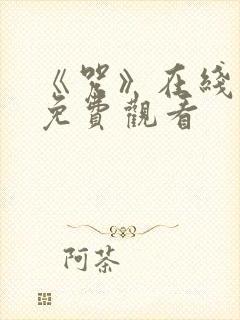 《咒》在綫
免費觀看
阿茶